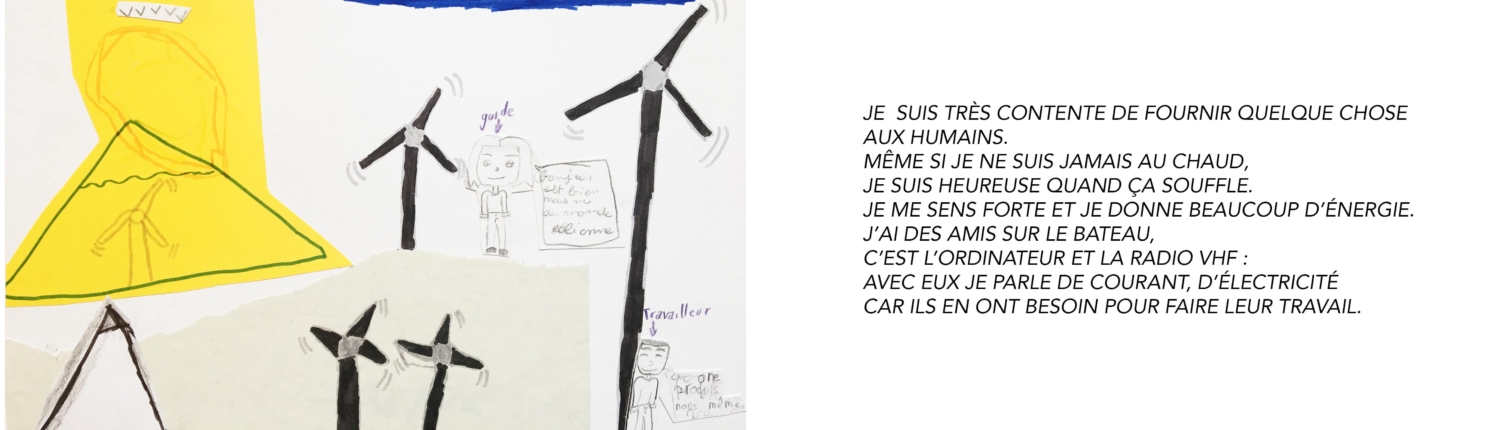 guide
bonjour
bien
au monde
eolienne
Travailleur
que one
produis
nous même.
JE SUIS TRÈS CONTENTE DE FOURNIR QUELQUE CHOSE
AUX HUMAINS.
MÊME SI JE NE SUIS JAMAIS AU CHAUD,
JE SUIS HEUREUSE QUAND ÇA SOUFFLE.
JE ME SENS FORTE ET JE DONNE BEAUCOUP D'ÉNERGIE.
J'AI DES AMIS SUR LE BATEAU,
C'EST L'ORDINATEUR ET LA RADIO VHF :
AVEC EUX JE PARLE DE COURANT, D'ÉLECTRICITÉ
CAR ILS EN ONT BESOIN POUR FAIRE LEUR TRAVAIL.